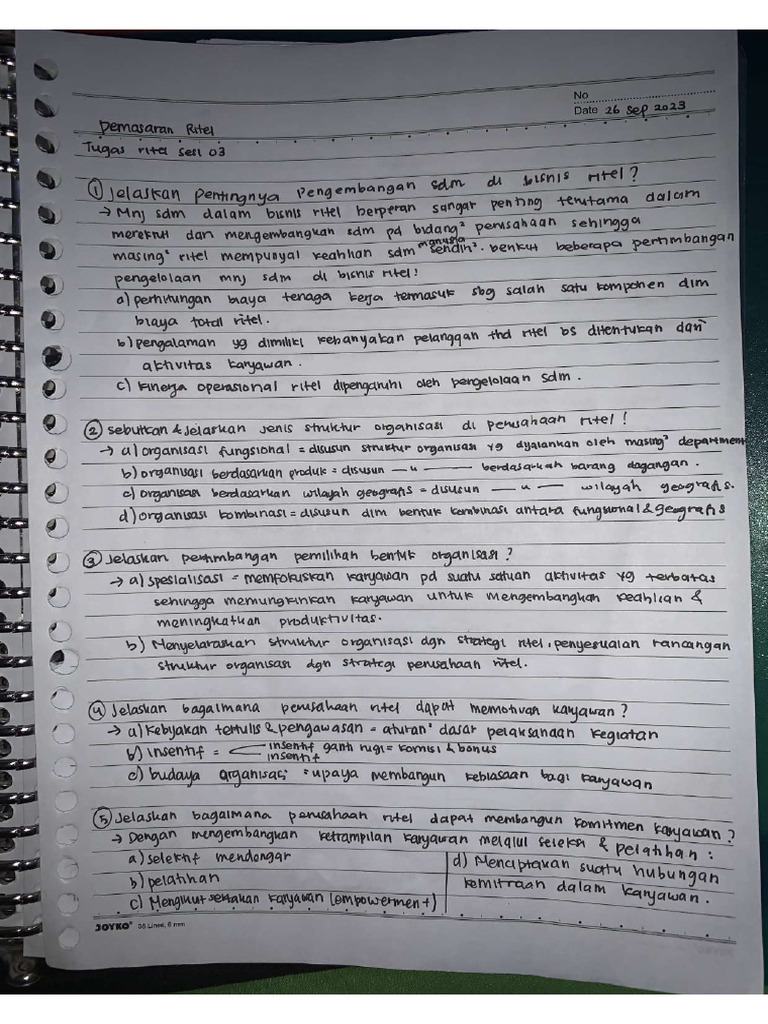 No
Date 26 Sep 2023
Pemasaran Ritel
Tugas ritel sesi 03
① Jelaskan pentingnya pengembangan sdm di bisnis ritel?
→ Mnj sdm dalam bisnis ritel berperan sangat penting terutama dalam
merekrut dan mengembangkan sdm pd bidang² perusahaan sehingga
masing² ritel mempunyai keahlian sdm manusia sendiri². berikut beberapa pertimbangan
pengelolaan mnj sdm di bisnis ritel!
a) perhitungan biaya tenaga kerja termasuk sbg salah satu komponen dlm
biaya total ritel.
b) pengalaman yg dimiliki kebanyakan pelanggan thd ritel bs ditentukan dari
aktivitas karyawan.
c) kinerja operasional ritel dipengaruhi oleh pengelolaan sdm.
② Sebutkan & jelaskan jenis struktur organisasi di perusahaan ritel!
→ a) organisasi fungsional = disusun struktur organisasi yg dijalankan oleh masing² department
b) organisasi berdasarkan produk = disusun — u — berdasarkan barang dagangan.
c) organisasi berdasarkan wilayah geografis = disusun — u — wilayah geografis.
d) organisasi kombinasi = disusun dlm bentuk kombinasi antara fungsional & geografis
③ Jelaskan pertimbangan pemilihan bentuk organisasi?
→ a) spesialisasi = memfokuskan karyawan pd suatu satuan aktivitas yg terbatas
sehingga memungkinkan karyawan untuk mengembangkan keahlian &
meningkatkan produktivitas.
b) Menyelaraskan struktur organisasi dgn strategi ritel, penyesuaian rancangan
struktur organisasi dgn strategi perusahaan ritel.
④ Jelaskan bagaimana perusahaan ritel dapat memotivasi karyawan?
→ a) kebijakan tertulis & pengawasan = aturan² dasar pelaksanaan kegiatan
b) insentif = insentif ganti rugi = komisi & bonus
insentif
c) budaya organisasi = upaya membangun kebiasaan bagi karyawan
⑤ Jelaskan bagaimana perusahaan ritel dapat membangun komitmen karyawan?
→ Dengan mengembangkan ketrampilan karyawan melalui seleksi & pelatihan :
a) selektif mendongar
b) pelatihan
c) Mengikutsertakan karyawan (empowerment)
d) Menciptakan suatu hubungan
kemitraan dalam karyawan.
JOYKO® 36 Lines, 6 mm